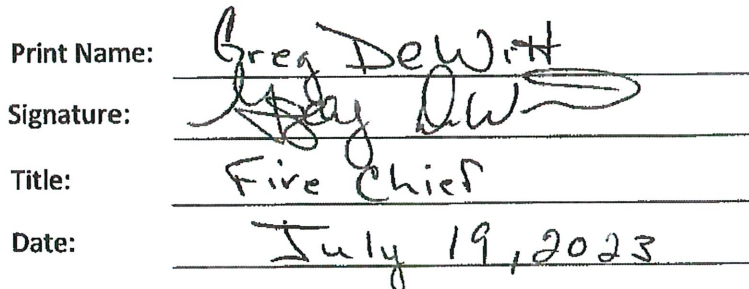 Print Name: Greg DeWitt
Signature: Greg DeW
Title: Fire Chief
Date: July 19, 2023